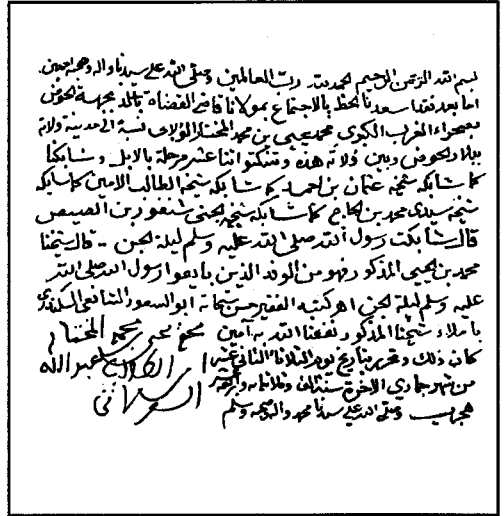 بسم الله الرحمن الرحيم الحمد لله رب العالمين وصلى الله على سيدنا وآله وصحبه أجمعين
أما بعد فقد أسعدنا الحظ بالاجتماع بمولانا قاضي القضاة بالمجهة الحوض
بصحراء الغرب الكبرى محمد يحيى بن محمد المختار الولاتي نسبة إلى مدينة ولاتة
ببلاد الحوض وبين ولاته هذه وتنبكتو اثنا عشر مرحلة بالإبل وشابكنا
كما شابكه شيخه عثمان بن أحمد كما شابكه شيخه الطالب الأمين كما شابكه
شيخه سيدي محمد بن الحاج كما شابكه شيخه الجني شنهورن
قال شابكت رسول الله صلى الله عليه وسلم ليلة الجن قال شيخنا
محمد بن يحيى المذكور فهو من الوفد الذين بايعوا رسول الله صلى الله
عليه وسلم ليلة الجن اهـ كتبه الفقير حسن شحاته أبو السعود الشافعي السكندري
بإملاء شيخنا المذكور نفعنا الله به آمين
كان ذلك وتحرير بتاريخ يوم الثلاثاء الثاني عشر
من شهر جمادى الآخرة سنة ألف وثلاثمائة
هجرية وصلى الله على سيدنا محمد وآله وصحبه وسلم
محمد يحيى بن محمد المختار
بن الطالب عبد الله